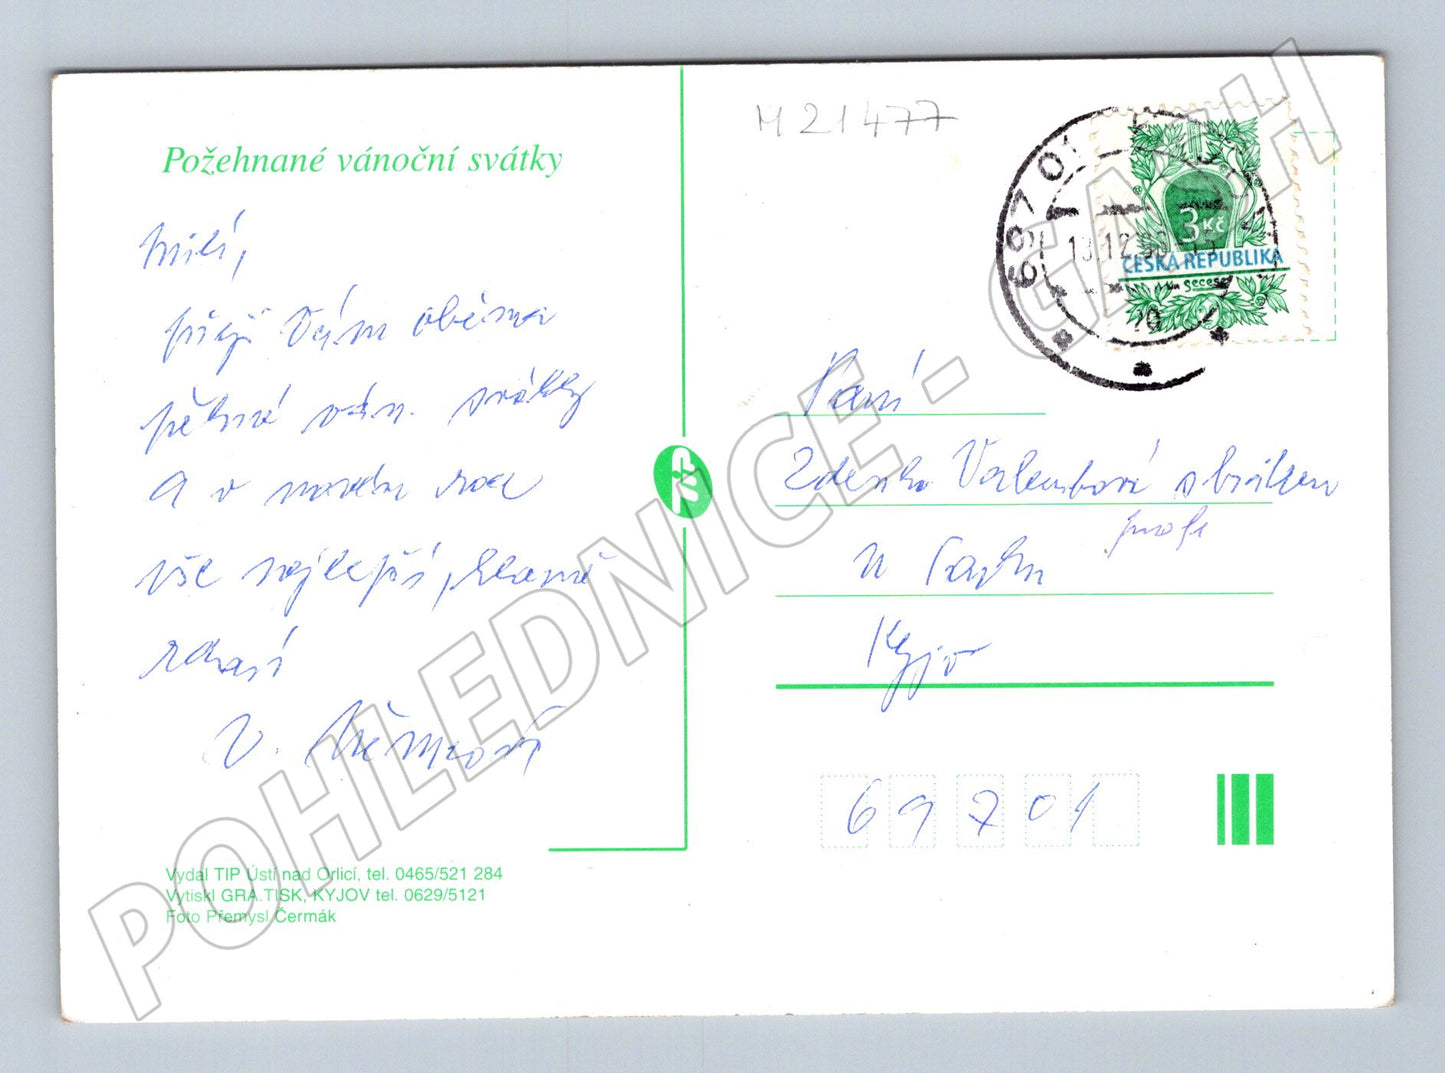 M 21477
Požehnané vánoční svátky
Milí,
přeji Vám oběma
pěkné ván. svátky
a v novém roce
vše nejlepší, hlavně
zdraví
V. Němcová
Vydal TIP Ústí nad Orlicí, tel. 0465/521 284
Vytiskl GRA.TISK, KYJOV tel. 0629/5121
Foto Přemysl Čermák
697 01
13.12.
3 Kč
ČESKÁ REPUBLIKA
Secese
Paní
Zdenka
Kyjov
69701
POHLEDNICE - GASH